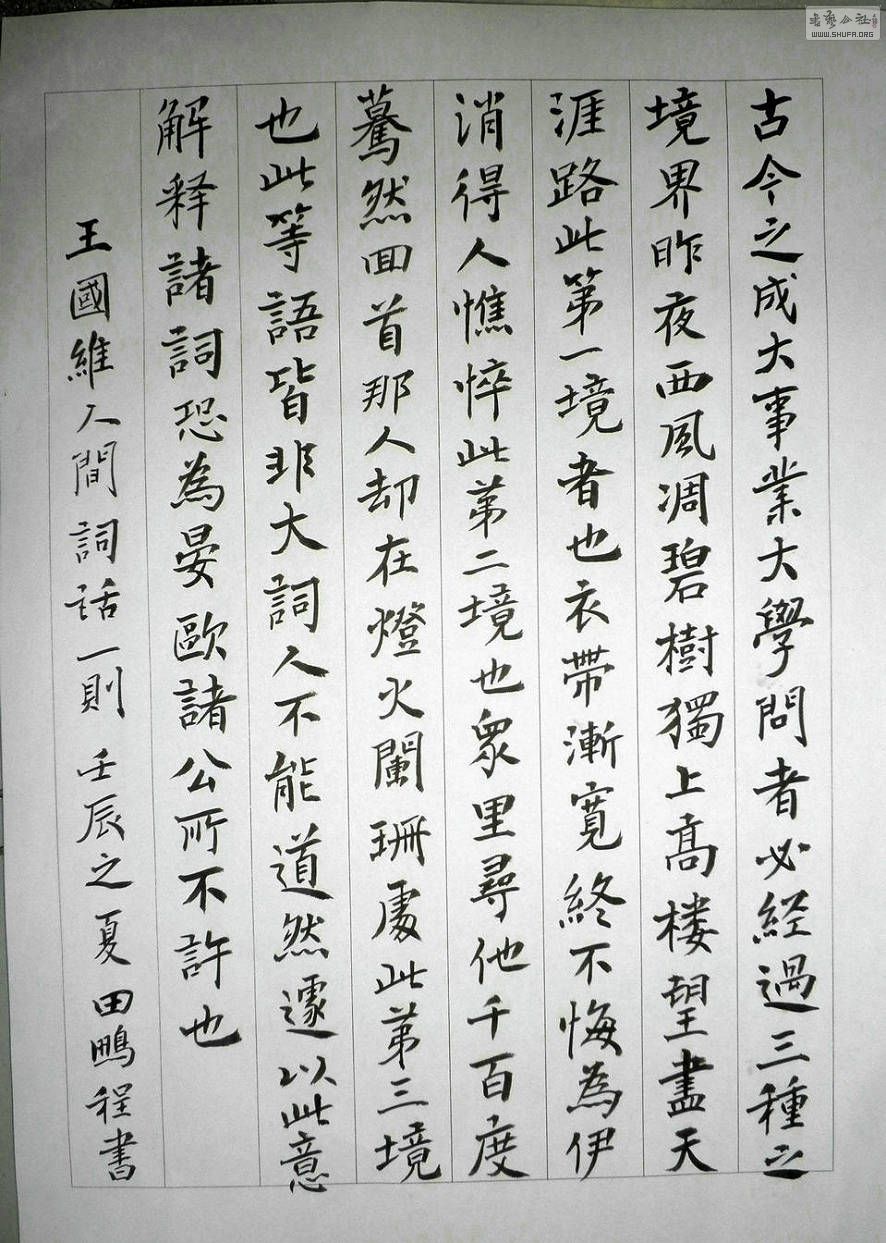 古今之成大事業大學問者必经過三種之
境界昨夜西风凋碧樹獨上高楼望盡天
涯路此第一境者也衣帶漸寬終不悔為伊
消得人憔悴此第二境也衆里尋他千百度
蓦然回首那人却在燈火闌珊處此第三境
也此等語皆非大詞人不能道然遽以此意
解释諸詞恐為晏歐諸公所不許也
王國維人間詞话一則壬辰之夏田鵬程書
WWW.SHUFA.ORG